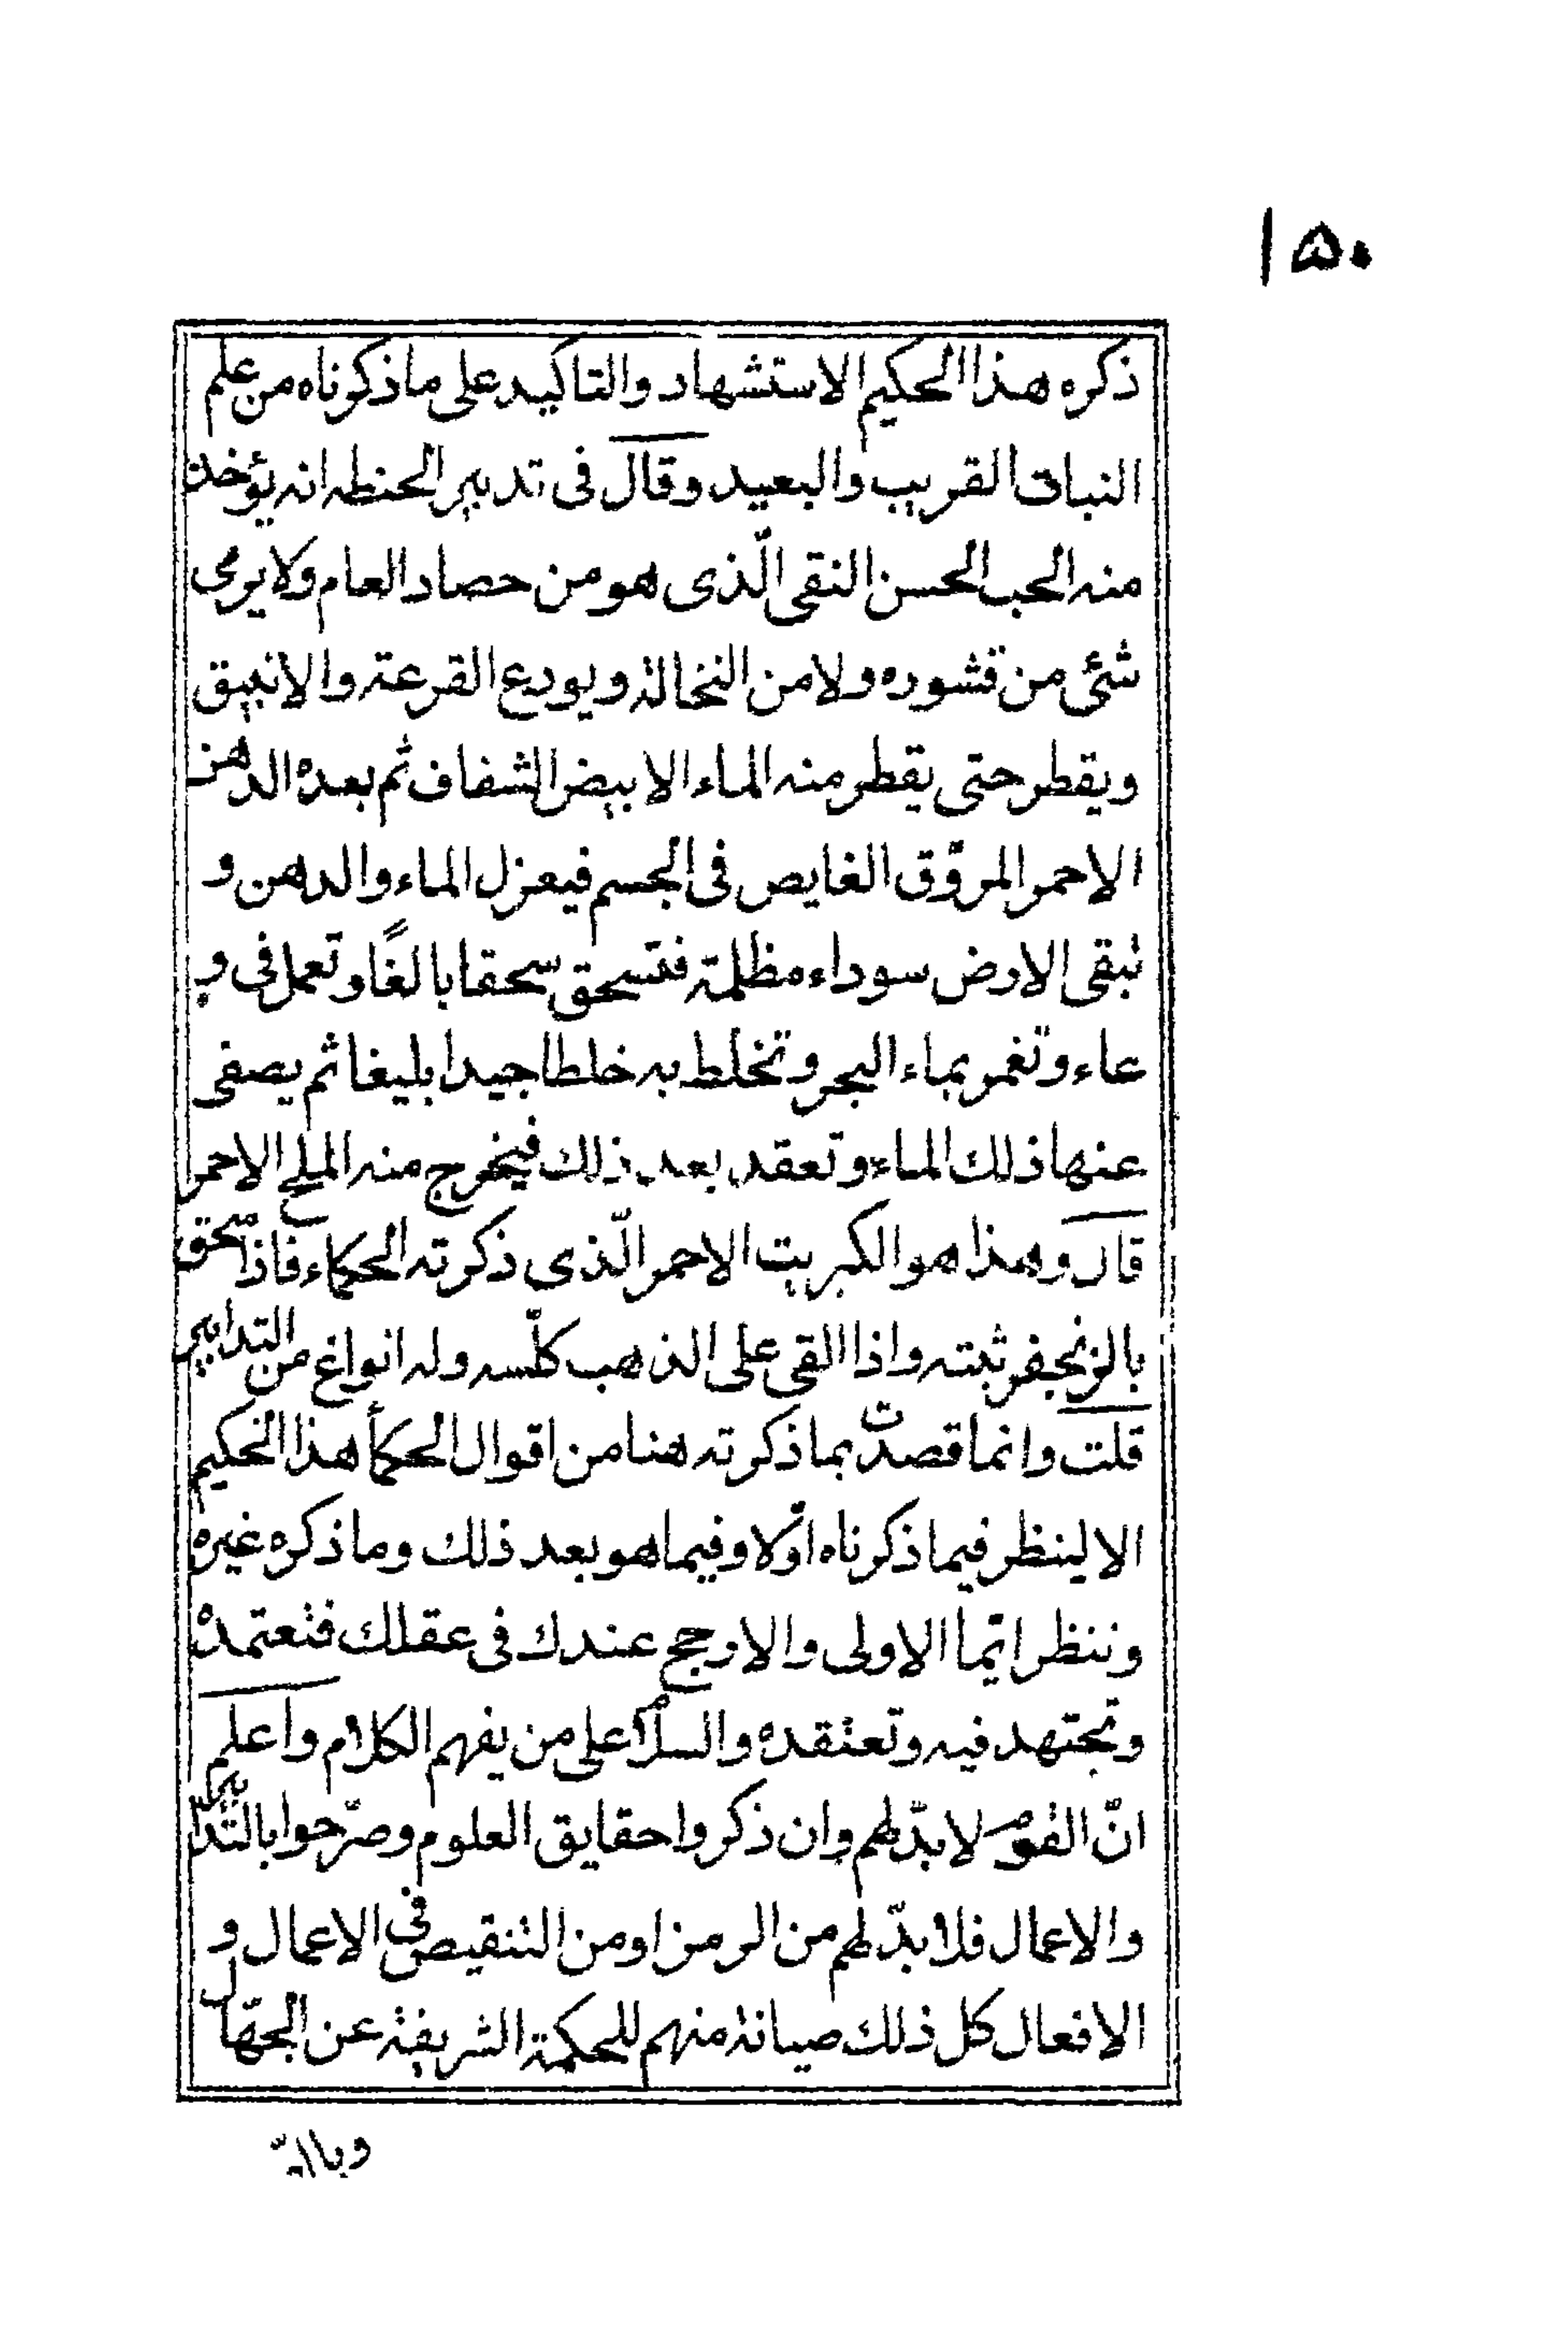 ١٥٠
ذكره هذا الحكيم الاستشهاد والتاكيد على ما ذكرناه من علم
النبات القريب والبعيد وقال فى تدبير الحنطه انه يؤخذ
منه الحب الحسن النقى الّذى هو من حصاد العام ولا يرمى
شئ من قشوره ولا من النخالة ويودع القرعة والانبيق
ويقطر حتى يقطر منه الماء الابيض الشفاف ثم بعده الدهن
الاحمر المروّق الغايص فى الجسم فيعزل الماء والدهن و
تبقى الارض سوداء مظلمة فتسحق سحقا بالغًا وتعمل فى و
عاء وتغمر بماء البحر وتخلط به خلطا جيدا بليغا ثم يصفى
عنها ذلك الماء وتعقد بعد ذلك فيخرج منه الملح الاحمر
قال وهذا هو الكبريت الاحمر الّذى ذكرته الحكماء فاذا سحق
بالزنجفر ثبته واذا القى على الذهب كلّسه وله انواع من التدابير
قلت وانما قصدت بما ذكرته هنا من اقوال الحكمأ هذا الحكيم
الا لينظر فيما ذكرناه اوّلا وفيما هو بعد ذلك وما ذكره غيره
وننظر ايّما الاولى والارجح عندك فى عقلك فتعتمده
وتجتهد فيه وتعتقده والسلام على من يفهم الكلام واعلم
انّ القوم لا بدّ لهم وان ذكروا حقايق العلوم وصرّحوا بالتّدابير
والاعمال فلا بدّ لهم من الرمز او من التنقيص فى الاعمال و
الافعال كل ذلك صيانة منهم للحكمة الشريفة عن الجهّال